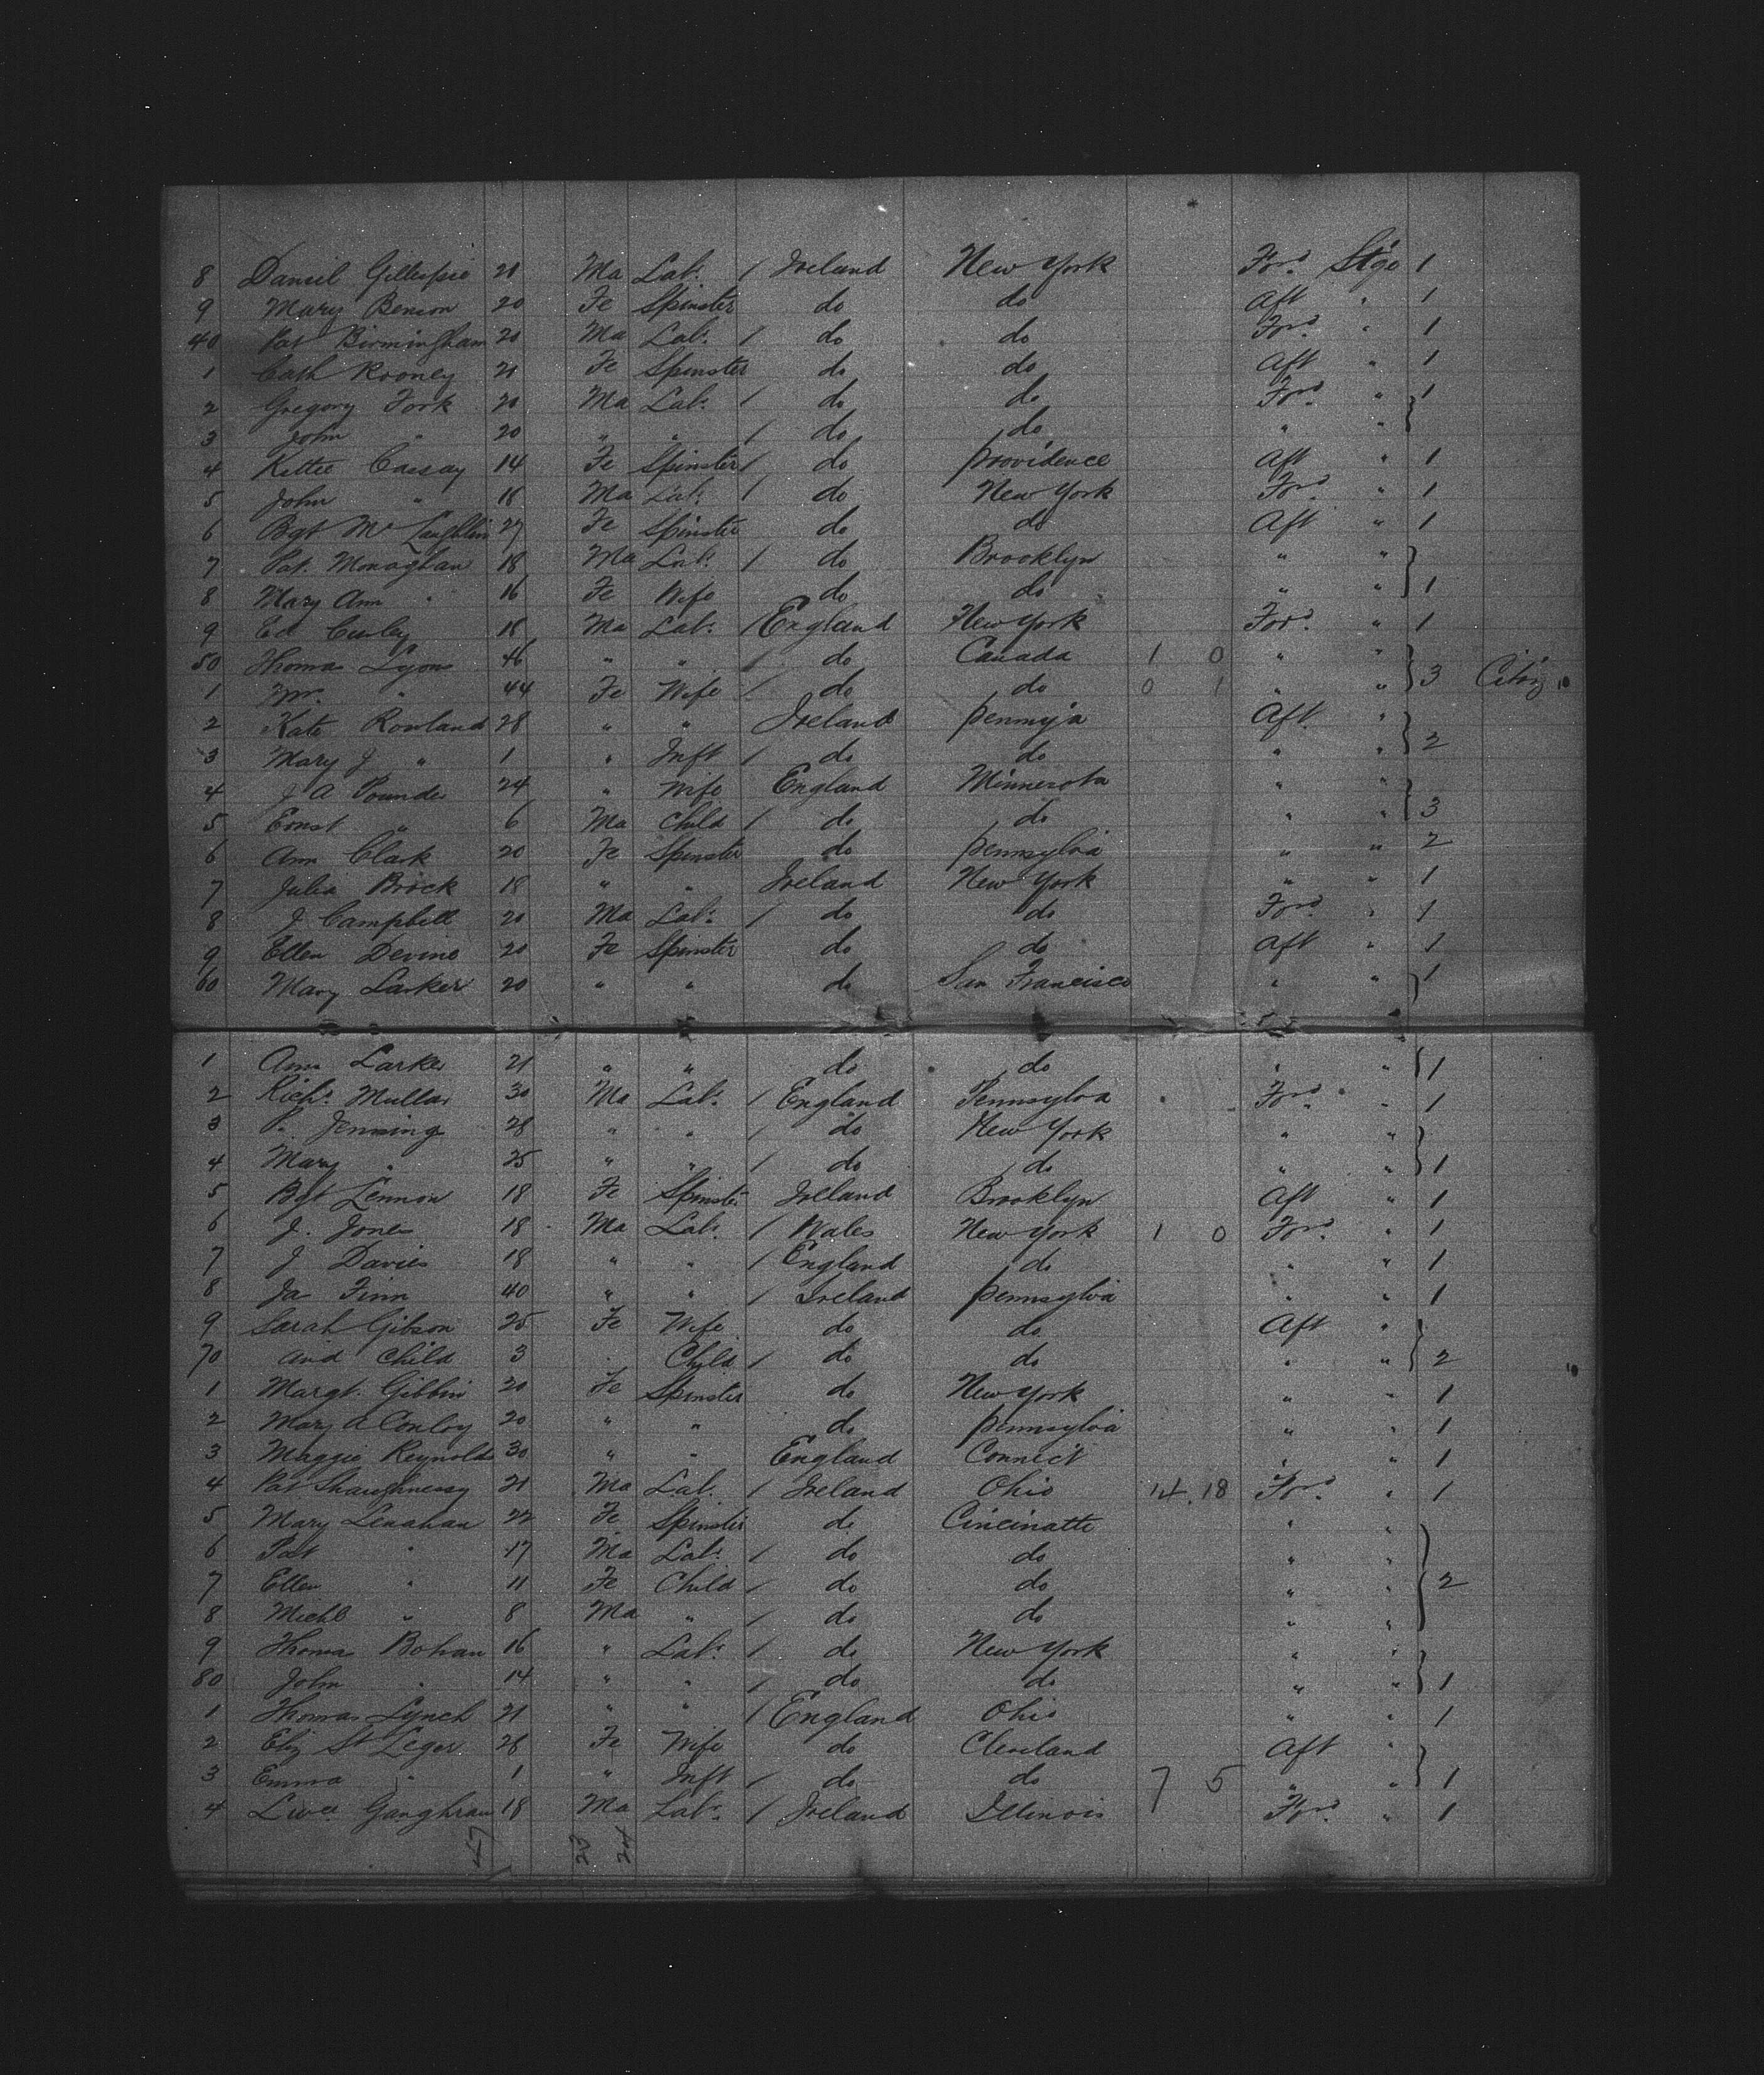 8 Daniel Gillespie 21 Ma Labr / Ireland New York Ford Stge 1
9 Mary Benson 20 Fe Spinster do do Aft " 1
40 Pat Birmingham 20 Ma Labr / do do Ford " 1
1 Cath Rooney 21 Fe Spinster do do Aft " 1
2 Gregory York 20 Ma Labr / do do Ford " } 1
3 John " 20 " " / do do "
4 Kittie Cassay 14 Fe Spinster / do providence Aft " 1
5 John " 18 Ma Labr / do New York Ford " 1
6 Bgt McLaughlin 27 Fe Spinster do do Aft " 1
7 Pat. Monaghan 18 Ma Labr / do Brooklyn " " }
8 Mary Ann " 16 Fe Wife do do " " 1
9 Ed Curley 18 Ma Labr / England New York Ford " 1
50 Thomas Lyons 46 " " / do Canada 1 0 " " }
1 Mrs " 44 Fe Wife / do do 0 1 " " 3 Citiz
2 Kate Rowland 28 " " Ireland pennyja Aft " }
3 Mary J " 1 " Inft / do do " " 2
4 J A Pounder 24 " Wife England Minnesota " " }
5 Ernst " 6 Ma Child / do do " " 3
6 Ann Clark 20 Fe Spinster do pensylva " " 2
7 Julia Brock 18 " " Ireland New York " " 1
8 J Campbell 20 Ma Labr / do do Ford " 1
9 Ellen Devine 20 Fe Spinster do do Aft " 1
60 Mary Larker 20 " " do San Francisco " " } 1
1 Ann Larker 21 " " do do " " { 1
2 Richd Mullar 30 Ma Labr / England Pennsylva Ford " 1
3 P. Jenning 28 " " / do New York " " }
4 Mary " 25 " " / do do " " 1
5 Bgt Lennon 18 Fe Spinstr Ireland Brooklyn Aft " 1
6 J. Jones 18 Ma Labr / Wales New York 1 0 Ford " 1
7 J Davies 18 " " / England do " " 1
8 Ja Finn 40 " " / Ireland pennsylva " " 1
9 Sarah Gibson 25 Fe Wife do do Aft " }
70 and Child 3 Child / do do " " 2
1 Margt. Gibbin 20 Fe Spinster do New York " " 1
2 Mary A Conloy 20 " " do pennsylva " " 1
3 Maggie Reynolds 30 " " England Connect " " 1
4 Pat Shaughnessy 21 Ma Labr / Ireland Ohio 14.18 Ford " 1
5 Mary Lenahan 22 Fe Spinster do Cincinatti " " }
6 Pat " 17 Ma Labr / do do " "
7 Ellen " 11 Fe Child / do do " " 2
8 Michl " 8 Ma " / do do " "
9 Thomas Bohan 16 " Labr / do New York " " }
80 John " 14 " " / do do " " 1
1 Thomas Lynch 21 " " / England Ohio " " 1
2 Eliz St Leger 28 Fe Wife do Cleveland Aft " }
3 Emma " 1 " Inft / do do 7 5 " " 1
4 Gaughran 18 Ma Labr / Ireland Illinois Ford " 1
47 23 24